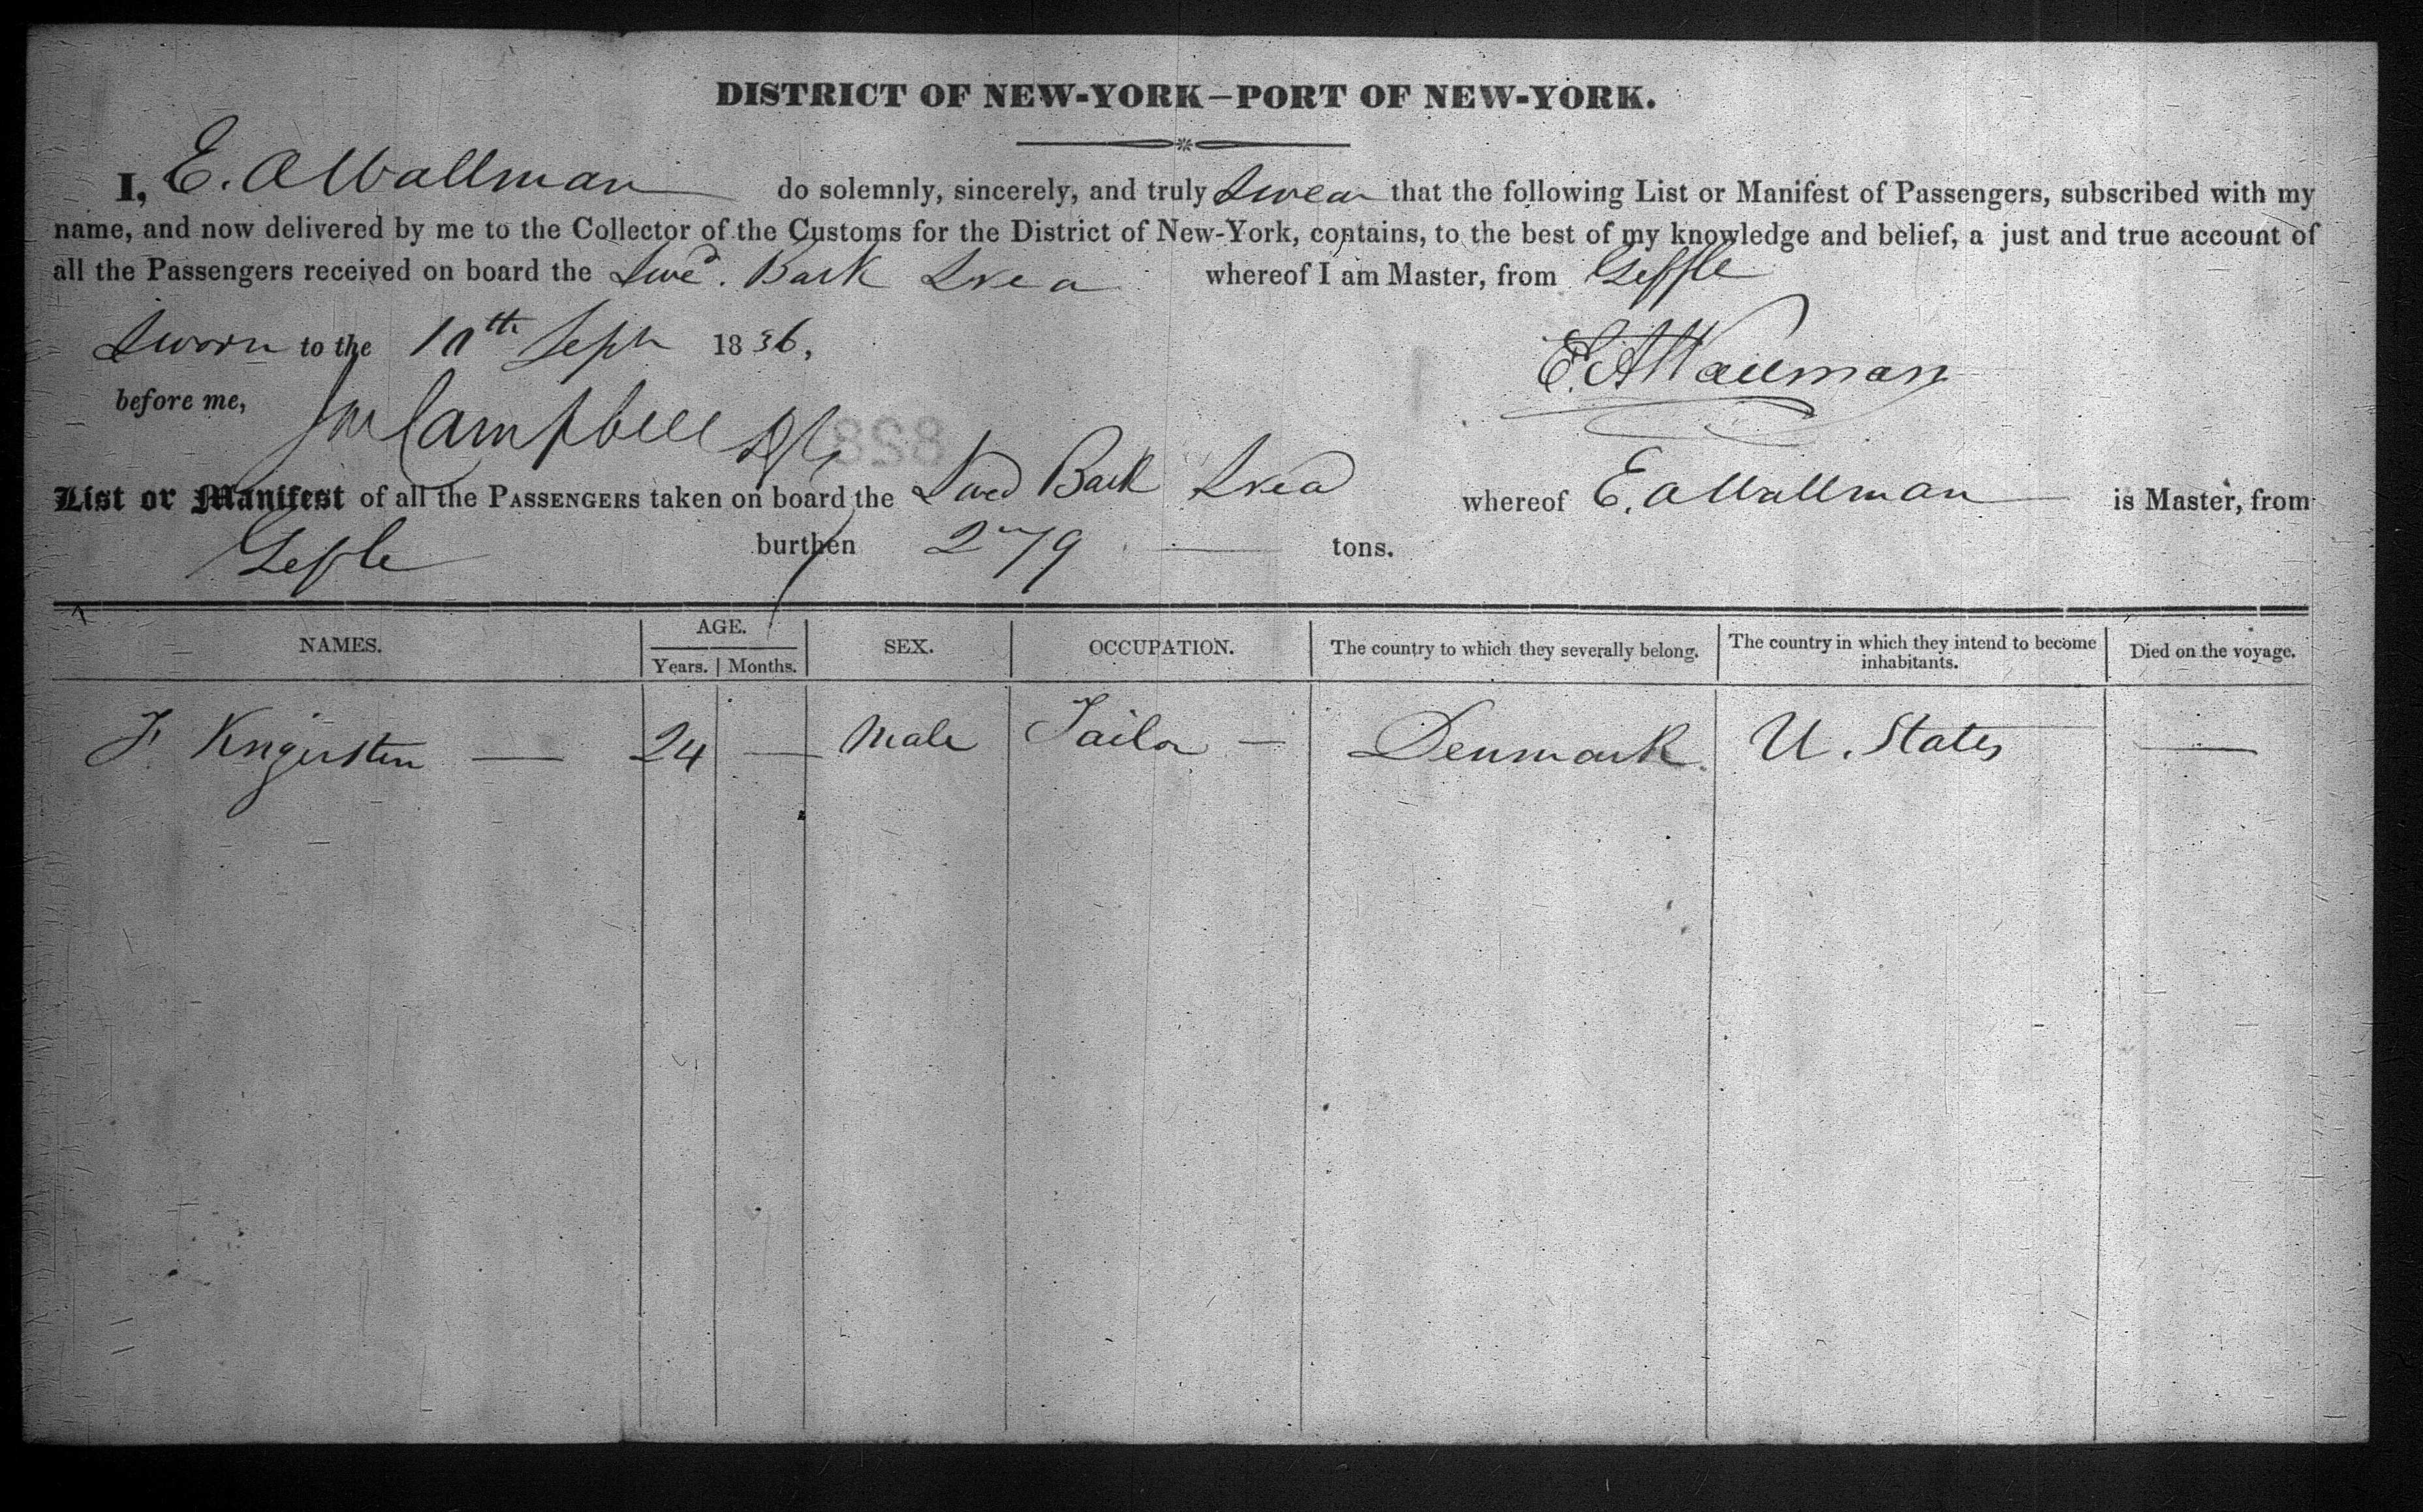 DISTRICT OF NEW-YORK—PORT OF NEW-YORK.
I, E. A Wallman do solemnly, sincerely, and truly Swear that the following List or Manifest of Passengers, subscribed with my
name, and now delivered by me to the Collector of the Customs for the District of New-York, contains, to the best of my knowledge and belief, a just and true account of
all the Passengers received on board the Swed. Bark Svea whereof I am Master, from Geffle
Sworn to the 10th Sept 1836,
E. A Wallman
before me, Campbell
828
List or Manifest of all the PASSENGERS taken on board the Swed Bark Svea whereof E. A Wallman is Master, from
Gefle burthen 279 tons.
NAMES. AGE. Years. Months. SEX. OCCUPATION. The country to which they severally belong. The country in which they intend to become inhabitants. Died on the voyage.
F. 24 — Male Tailor — Denmark. U. States —